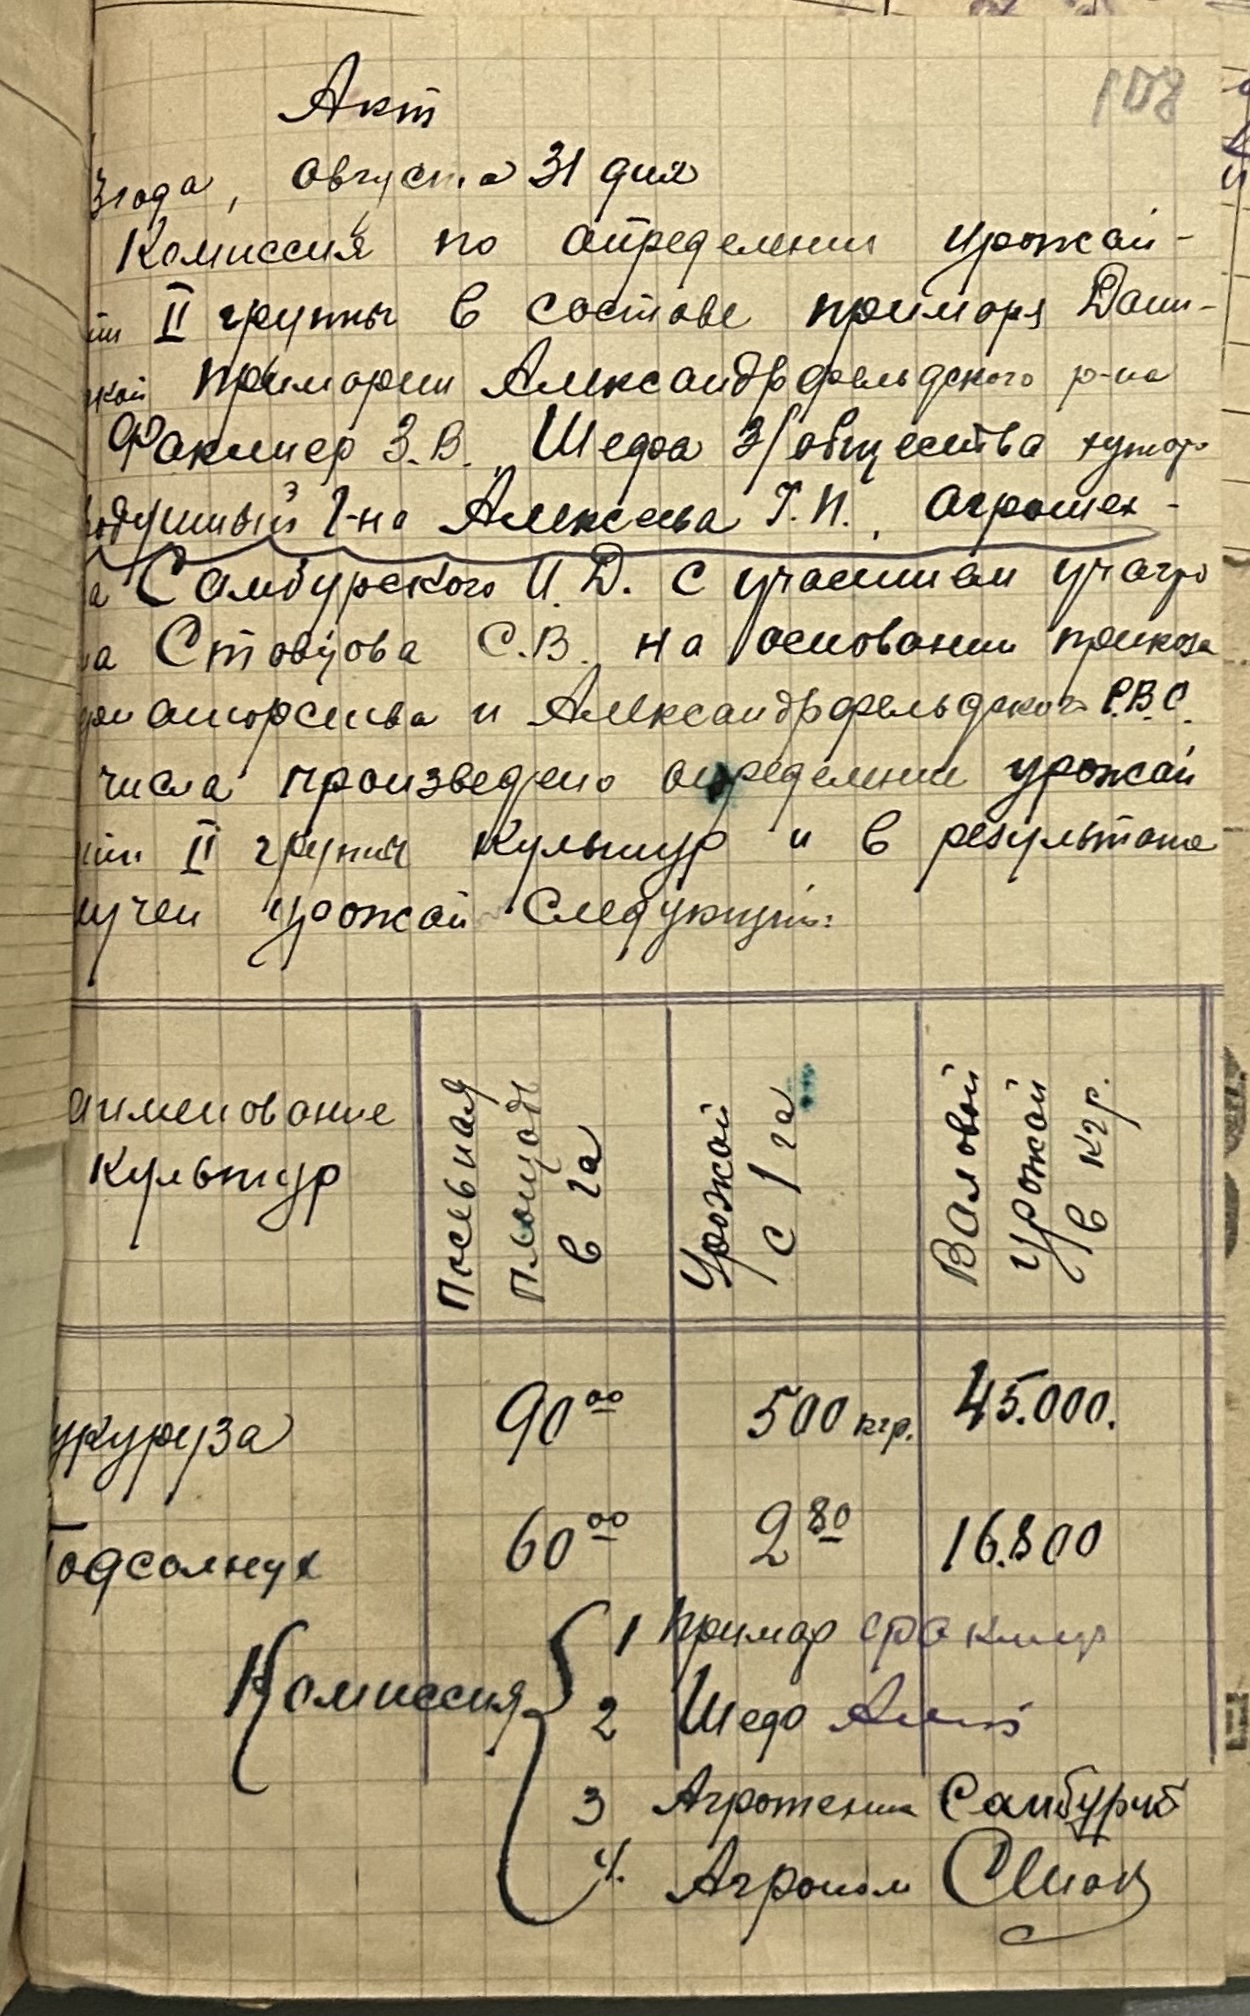 108
Акт
3 года, августа 31 дня
Комиссия по определении урожай-
ти II группы в составе примаря Дани-
кой примарии Александрфельдского р-на
Факлиер З.В. Шефа з/общества хутор
Алексеева Г.П., агротех-
а Самбурского И.Д. с участием учагро
а Стовцова С.В. на основании приказа
и Александрфельдског Р.В.С.
числа произведено определении урожай
ти II группы культур и в результате
лучен урожай следующий:
аименование культур
Посевная площадь в га
Урожай с 1 га
Валовой урожай в кгр.
укуруза 90 00 500 кгр. 45.000.
Подсолнух 60 00 2 80 16.800
Комиссия
1 Примар
2 Шефо
3 Агротехник Самбурск
4. Агроном